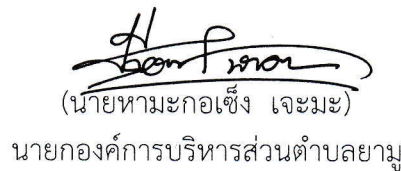 (นายหามะกอเซ็ง เจะมะ)
นายกองค์การบริหารส่วนตำบลยามู